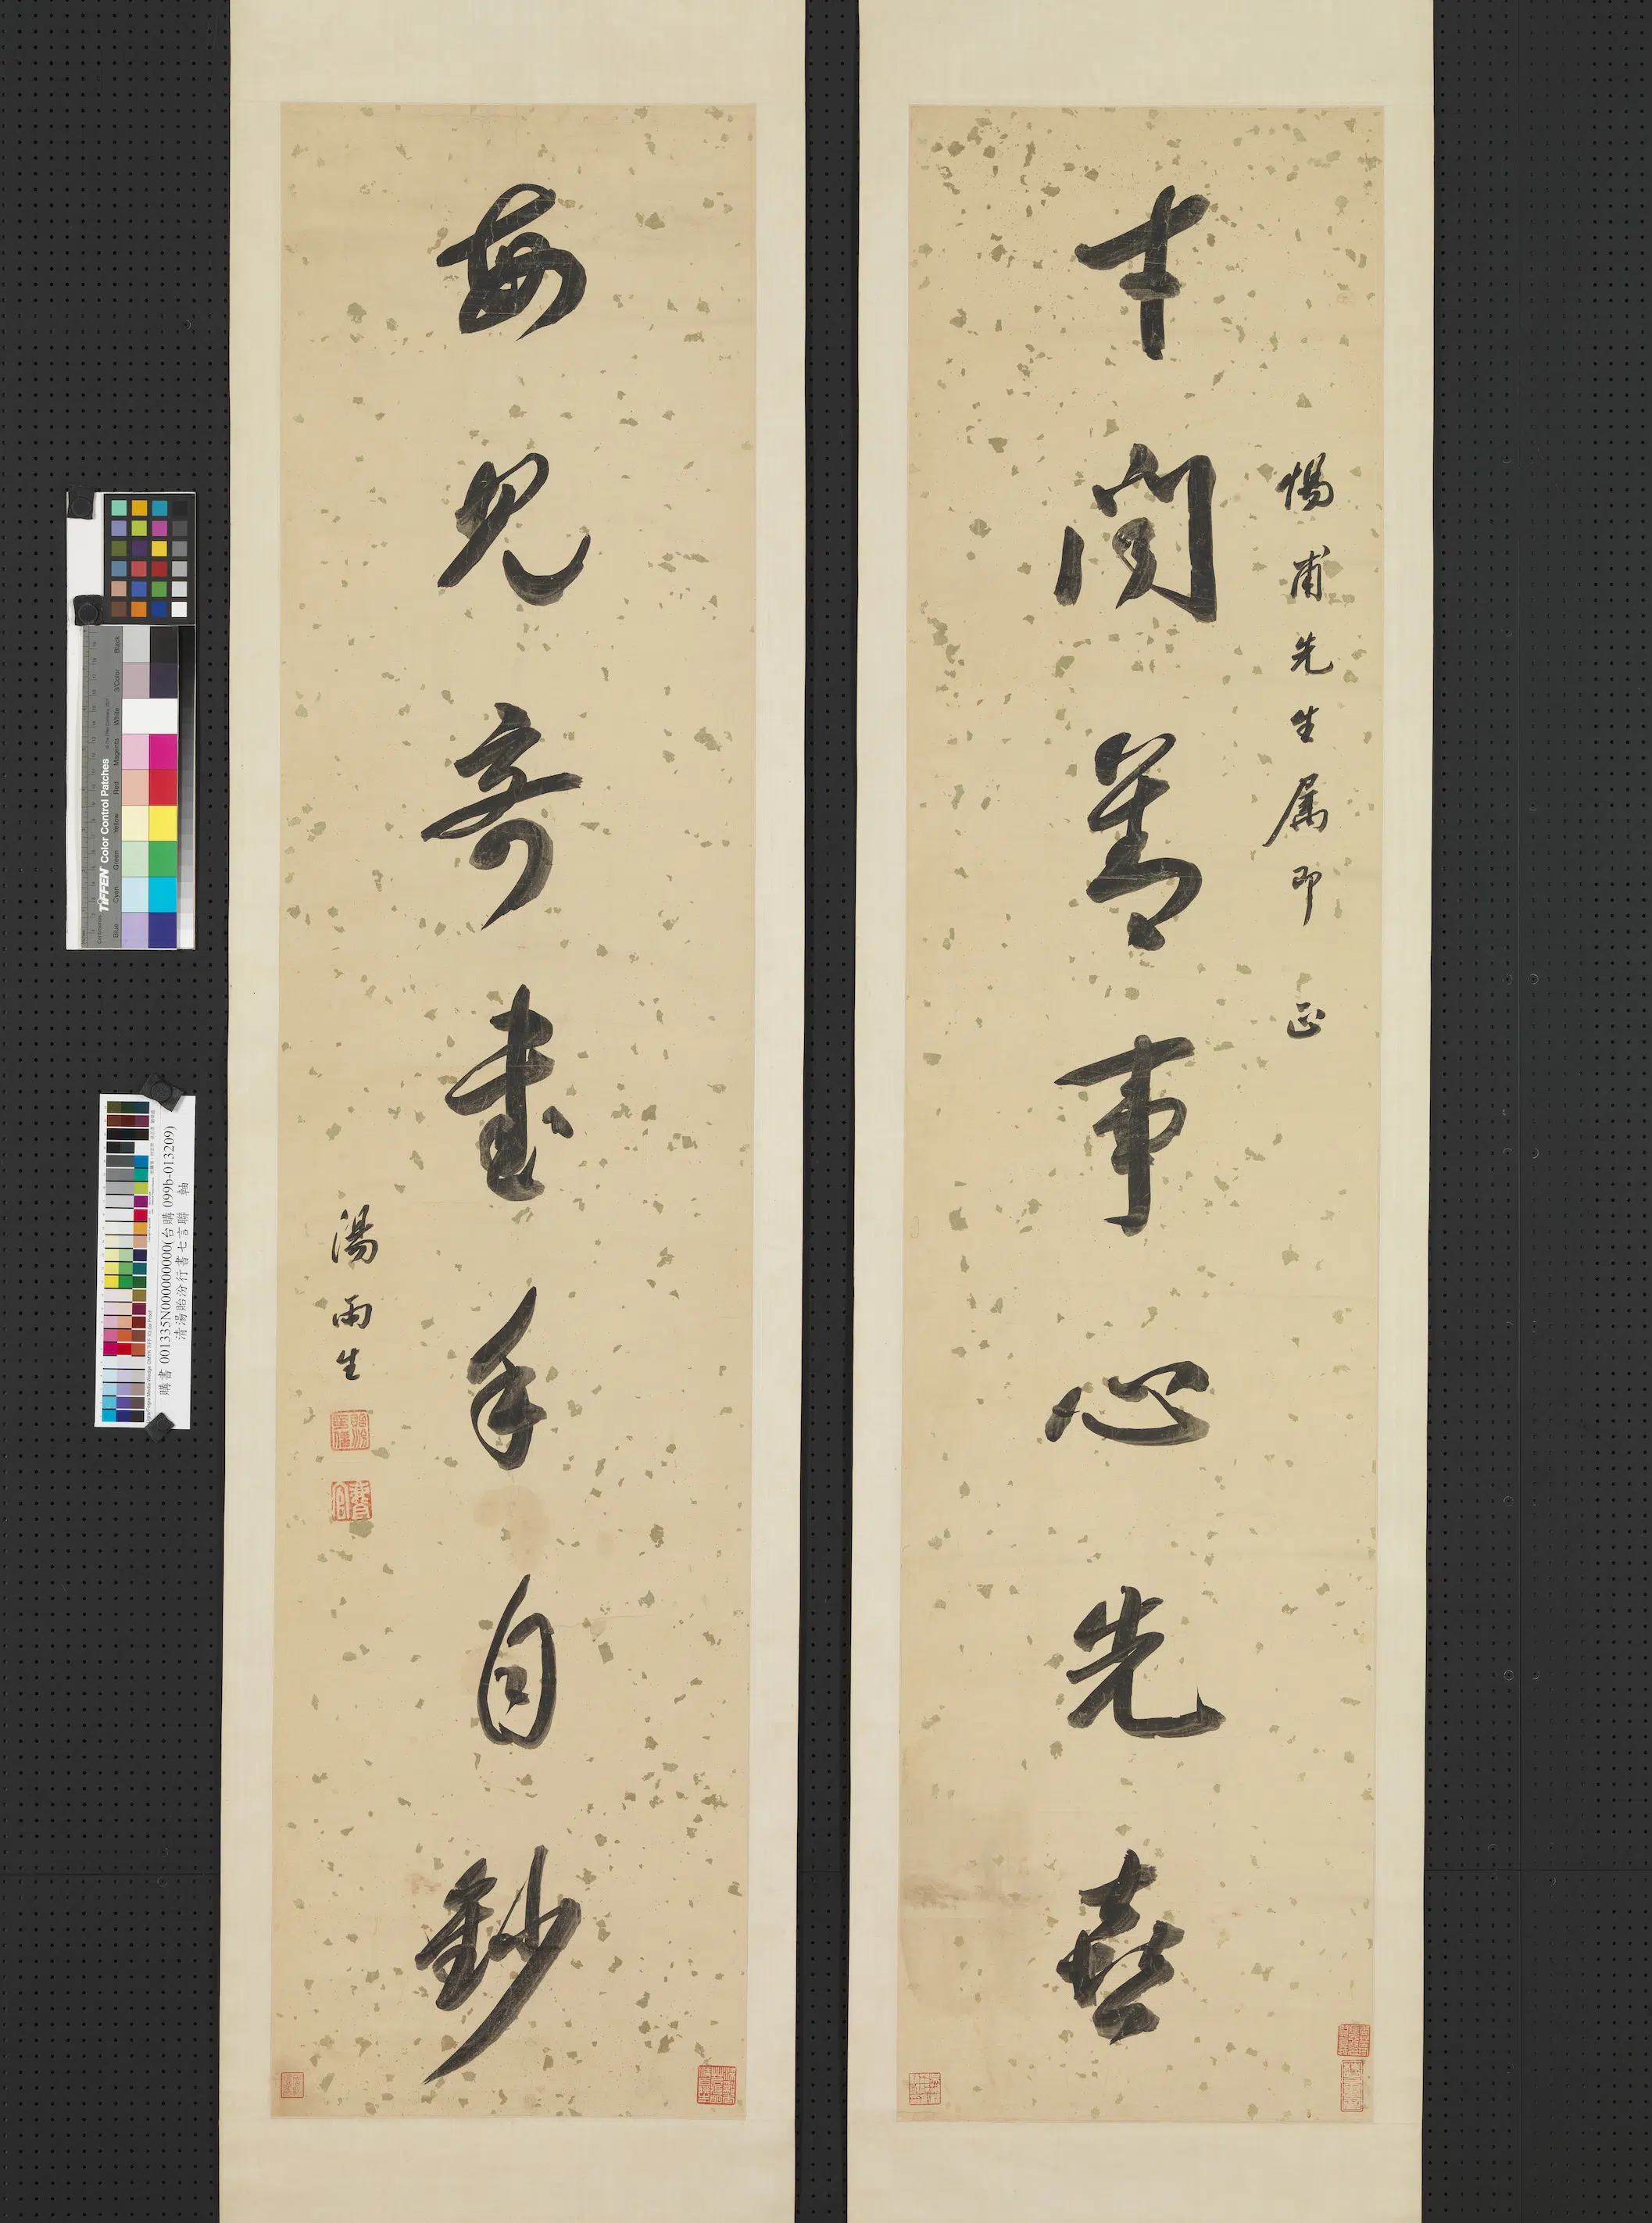 惕甫先生属即正
才聞善事心先喜
每見奇書手自鈔
湯雨生
貽汾
TIFFEN Color Control Patches
Blue Cyan Green Yellow Red Magenta White 3/Color Black
購書 001335N000000000(台購 099b-013209)
清湯貽汾行書七言聯 軸